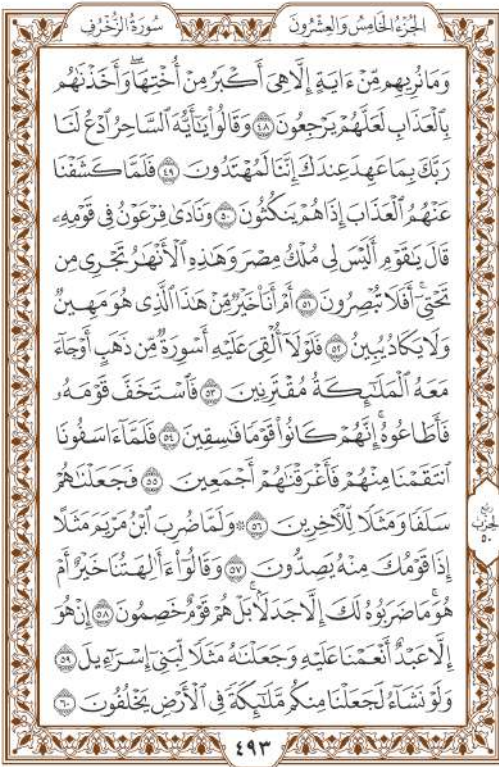 الجُزْءُ الخَامِسُ وَالعِشْرُونَ سُورَةُ الزُّخْرُفِ
وَمَا نُرِيهِم مِّنْ ءَايَةٍ إِلَّا هِيَ أَكْبَرُ مِنْ أُخْتِهَاۖ وَأَخَذْنَٰهُم
بِٱلْعَذَابِ لَعَلَّهُمْ يَرْجِعُونَ ٤٨ وَقَالُوا۟ يَٰٓأَيُّهَ ٱلسَّاحِرُ ٱدْعُ لَنَا
رَبَّكَ بِمَا عَهِدَ عِندَكَ إِنَّنَا لَمُهْتَدُونَ ٤٩ فَلَمَّا كَشَفْنَا
عَنْهُمُ ٱلْعَذَابَ إِذَا هُمْ يَنكُثُونَ ٥٠ وَنَادَىٰ فِرْعَوْنُ فِي قَوْمِهِۦ
قَالَ يَٰقَوْمِ أَلَيْسَ لِي مُلْكُ مِصْرَ وَهَٰذِهِ ٱلْأَنْهَٰرُ تَجْرِي مِن
تَحْتِيٓۚ أَفَلَا تُبْصِرُونَ ٥١ أَمْ أَنَا۠ خَيْرٌ مِّنْ هَٰذَا ٱلَّذِي هُوَ مَهِينٌ
وَلَا يَكَادُ يُبِينُ ٥٢ فَلَوْلَآ أُلْقِيَ عَلَيْهِ أَسْوِرَةٌ مِّن ذَهَبٍ أَوْ جَآءَ
مَعَهُ ٱلْمَلَٰٓئِكَةُ مُقْتَرِنِينَ ٥٣ فَٱسْتَخَفَّ قَوْمَهُۥ
فَأَطَاعُوهُۚ إِنَّهُمْ كَانُوا۟ قَوْمًا فَٰسِقِينَ ٥٤ فَلَمَّآ ءَاسَفُونَا
ٱنتَقَمْنَا مِنْهُمْ فَأَغْرَقْنَٰهُمْ أَجْمَعِينَ ٥٥ فَجَعَلْنَٰهُمْ
سَلَفًا وَمَثَلًا لِّلْءَاخِرِينَ ٥٦ ۞ وَلَمَّا ضُرِبَ ٱبْنُ مَرْيَمَ مَثَلًا
إِذَا قَوْمُكَ مِنْهُ يَصِدُّونَ ٥٧ وَقَالُوٓا۟ ءَأَٰلِهَتُنَا خَيْرٌ أَمْ
هُوَۚ مَا ضَرَبُوهُ لَكَ إِلَّا جَدَلَۢاۚ بَلْ هُمْ قَوْمٌ خَصِمُونَ ٥٨ إِنْ هُوَ
إِلَّا عَبْدٌ أَنْعَمْنَا عَلَيْهِ وَجَعَلْنَٰهُ مَثَلًا لِّبَنِيٓ إِسْرَٰٓءِيلَ ٥٩
وَلَوْ نَشَآءُ لَجَعَلْنَا مِنكُم مَّلَٰٓئِكَةً فِي ٱلْأَرْضِ يَخْلُفُونَ ٦٠
ربع
الحزب
٥٠
٤٩٣